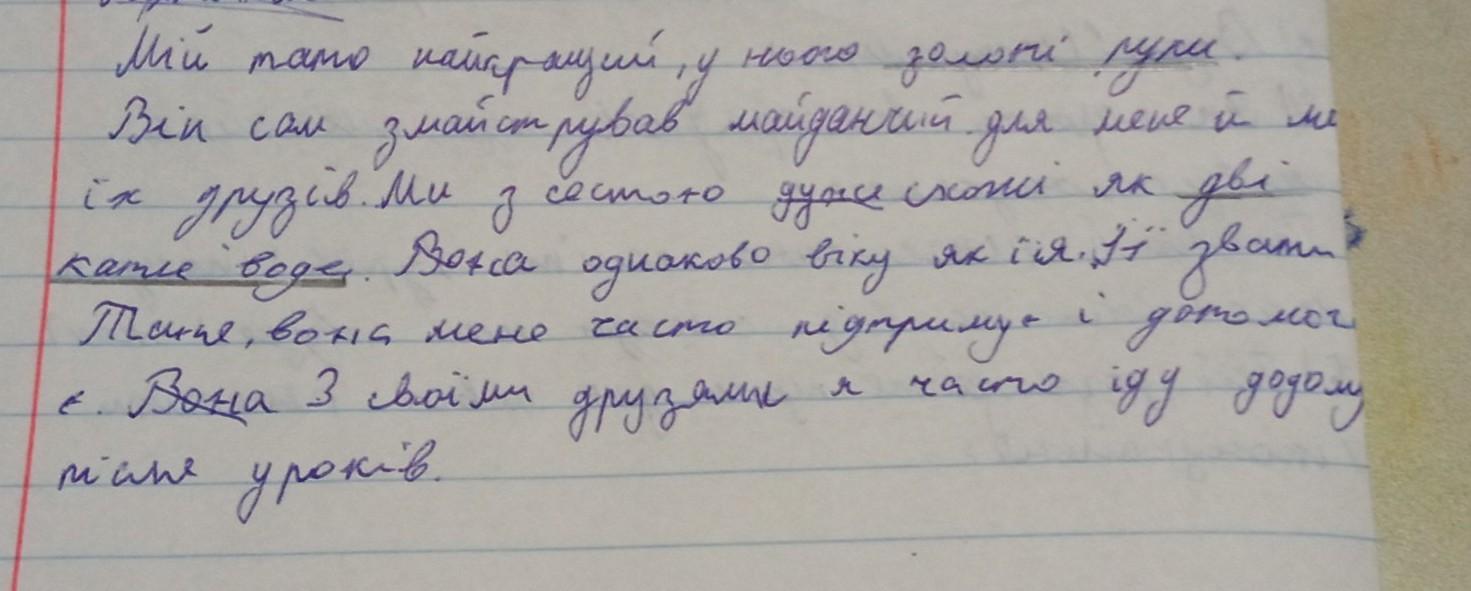 Мій тато найкращий, у нього золоті руки.
Він сам змайстрував майданчий для мене й мо
їх друзів. Ми з сестою дуже схожі як дві
каплі води. Вона однаково віку як і я. Її звати
Таня, вона мене часто підтримує і допомог
є. Вона З своїми друзями я часто іду додому
після уроків.